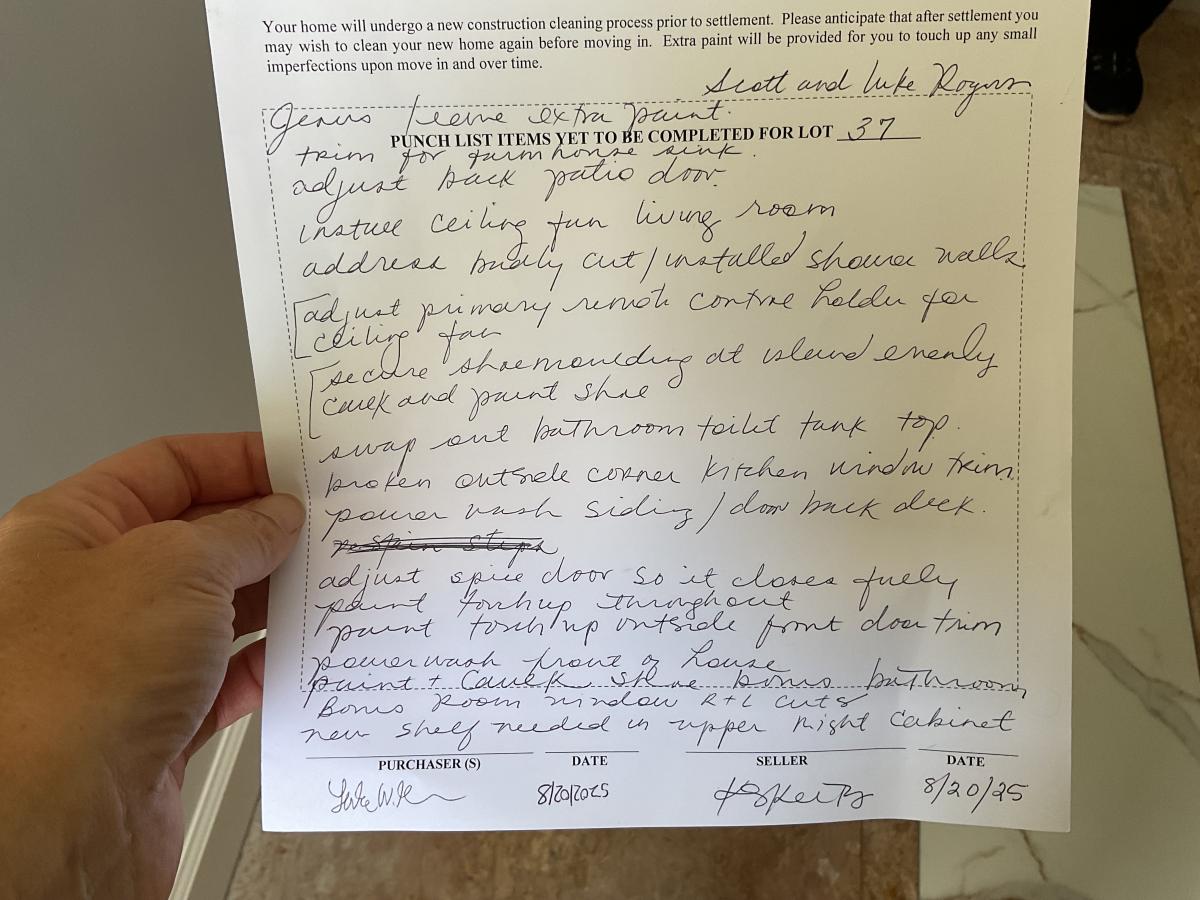 Your home will undergo a new construction cleaning process prior to settlement. Please anticipate that after settlement you
may wish to clean your new home again before moving in. Extra paint will be provided for you to touch up any small
imperfections upon move in and over time.
Scott and Luke Rogers
leave extra paint.
PUNCH LIST ITEMS YET TO BE COMPLETED FOR LOT 37
trim for farmhouse sink.
adjust back patio door.
install ceiling fan living room
address badly cut/installed shower walls
adjust primary remote control holder for
ceiling fan
secure shoemoulding at island evenly
caulk and paint shoe
swap out bathroom toilet tank top.
broken outside corner kitchen window trim
power wash siding/door back deck.
adjust spice door so it closes fuely
paint touchup throughout
paint touch up outside front door trim
powerwash front of house
paint + caulk shoe bonus bathroom
Bonus Room window R+L cuts
new shelf needed in upper right cabinet
PURCHASER (S) DATE SELLER DATE
8/20/2025 8/20/25